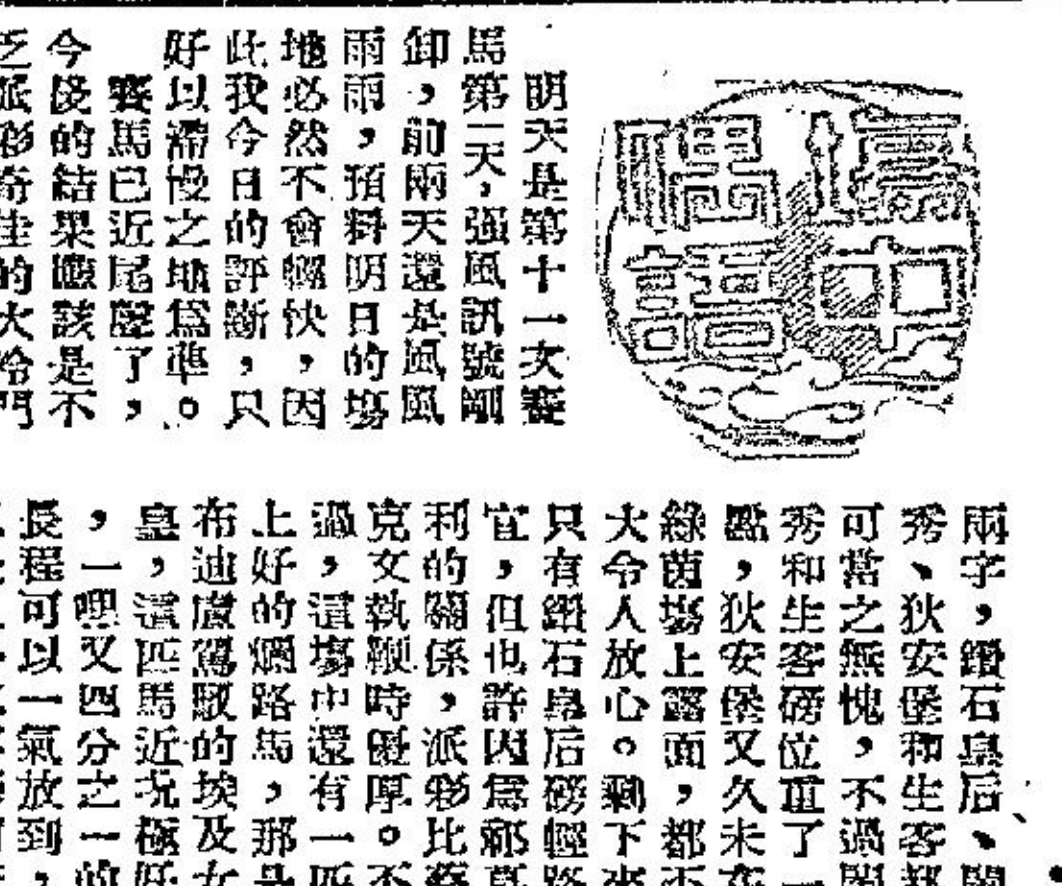 場中偶語
明天是第十一次賽
馬第二天，强風訊號剛
卸，前兩天還是風風
雨雨，預料明日的塲
地必然不會快，因
此我今日的評斷，只
好以濡慢之地爲準。
賽馬已近尾聲了，
今後的結果應該是不
乏派彩奇佳的大冷門
兩字，鑽石皇后、開
秀、狄安堡和生客、都
可當之無愧，不過開
秀和生客磅位重了一
點，狄安堡又久未在
綠茵塲上露面，都不
大令人放心。剩下來
只有鑽石皇后磅輕路
宜，但也許因爲鄒
利的關係，派彩比蔡
克文執鞭時優厚。不
過，這塲中還有一匹
上好的爛路馬，那是
布迪盧駕馭的埃及女
皇，這匹馬近况極好
，一哩又四分之一的
長程可以一氣放到